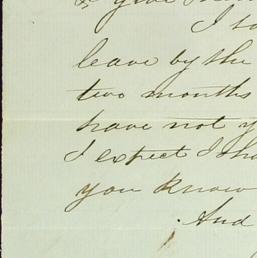 & give
I
leave by the
two months
have not y
I expect I sha
you know
And